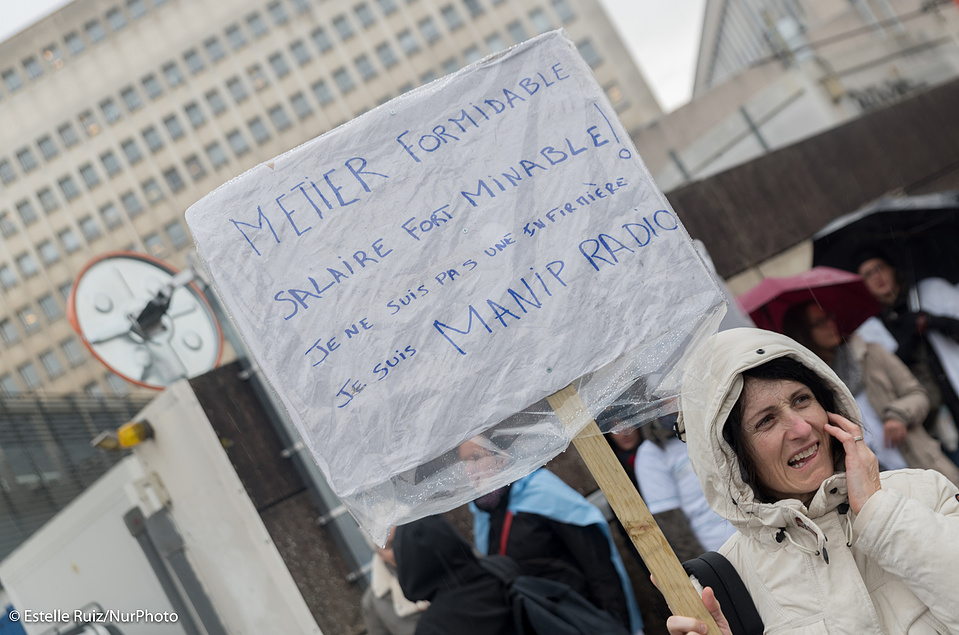 METIER FORMIDABLE
SALAIRE FORT MINABLE!
JE NE SUIS PAS UNE INFIRMIÈRE
JE SUIS MANIP RADIO
© Estelle Ruiz/NurPhoto